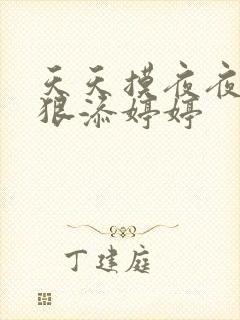 天天摸夜夜
狠添婷婷
丁建庭